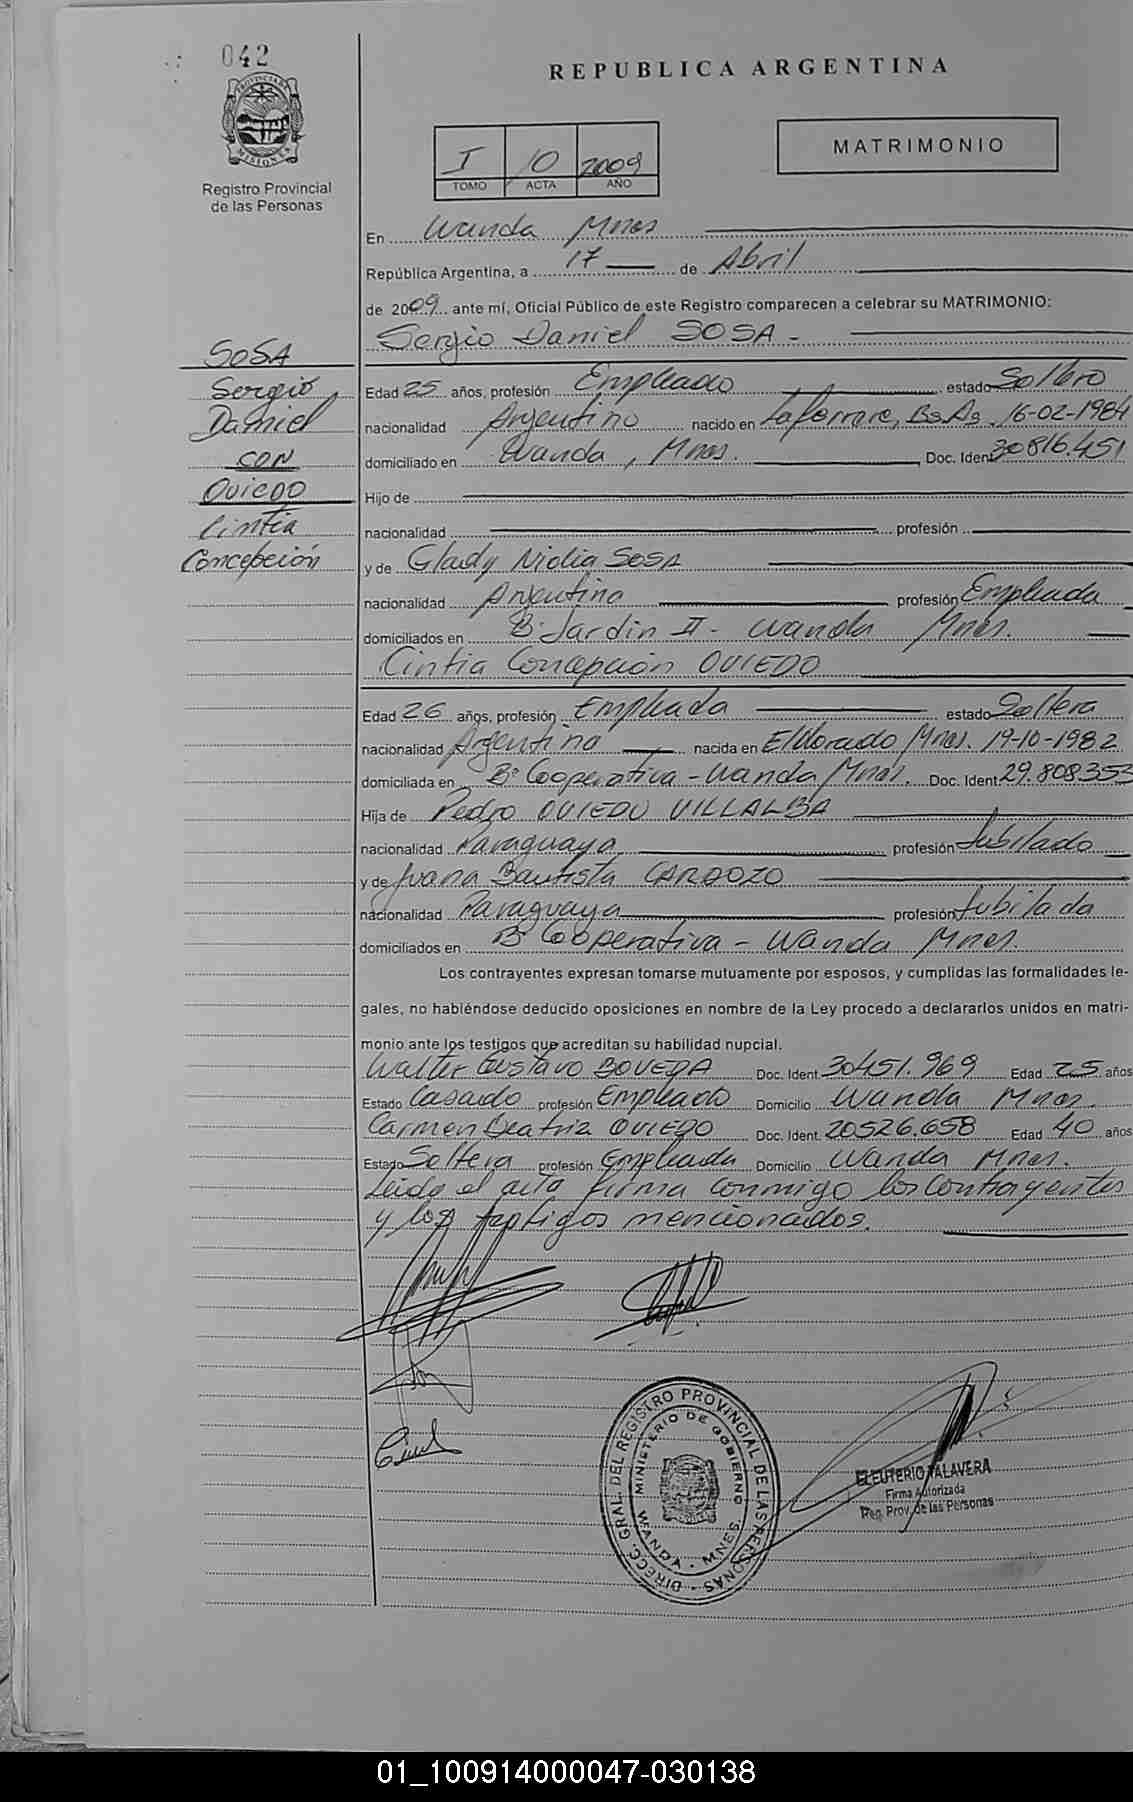 042
PROVINCIA DE
MISIONES
Registro Provincial
de las Personas
REPUBLICA ARGENTINA
I 10 2009
TOMO ACTA AÑO
MATRIMONIO
En Wanda Mnes
República Argentina, a 17 de Abril
de 2009 ante mí, Oficial Público de este Registro comparecen a celebrar su MATRIMONIO:
Sergio Daniel SOSA -
SOSA
Sergio
Daniel
CON
OVIEDO
Cintia
Concepción
Edad 25 años, profesión Empleado estado Soltero
nacionalidad Argentino nacido en Laferrere, Bs.As. 16-02-1984
domiciliado en Wanda, Mnes. Doc. Ident 30816.451
Hijo de
nacionalidad profesión
y de Glady Nidia SOSA
nacionalidad Argentina profesión Empleada
domiciliados en B. Jardin II - Wanda Mnes.
Cintia Concepción OVIEDO
Edad 26 años, profesión Empleada estado Soltera
nacionalidad Argentina nacida en Eldorado Mnes. 19-10-1982
domiciliada en Bº Cooperativa - Wanda Mnes. Doc. Ident. 29.808.353
Hija de Pedro OVIEDO VILLALBA
nacionalidad Paraguaya profesión Jubilado
y de Juana Bautista CARDOZO
nacionalidad Paraguaya profesión Jubilada
domiciliados en Bº Cooperativa - Wanda Mnes.
Los contrayentes expresan tomarse mutuamente por esposos, y cumplidas las formalidades le-
gales, no habiéndose deducido oposiciones en nombre de la Ley procedo a declararlos unidos en matri-
monio ante los testigos que acreditan su habilidad nupcial.
Walter Gustavo BOVEDA Doc. Ident. 30451.969 Edad 25 años
Estado Casado profesión Empleado Domicilio Wanda Mnes.
Carmen Beatriz OVIEDO Doc. Ident. 20526.658 Edad 40 años
Estado Soltera profesión Empleada Domicilio Wanda Mnes.
Leída el acta firma conmigo los contrayentes
y los testigos mencionados.
DIRECC. GRAL. DEL REGISTRO PROVINCIAL DE LAS PERSONAS
MINISTERIO DE GOBIERNO
WANDA - MNES.
ELEUTERIO TALAVERA
Firma Autorizada
Reg. Prov. de las Personas
01_100914000047-030138